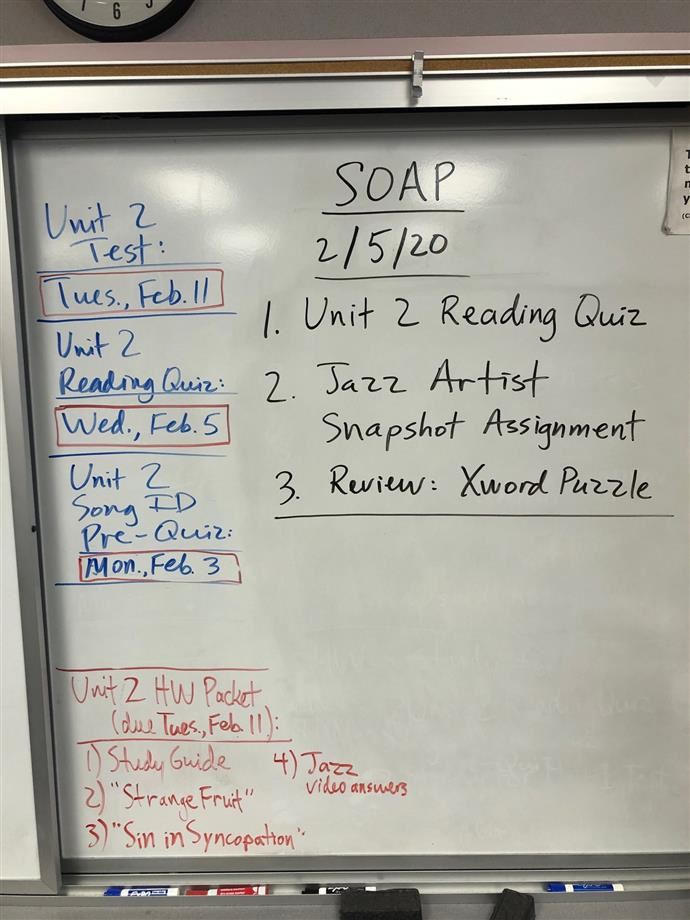 7 6 5
SOAP
2/5/20
1. Unit 2 Reading Quiz
2. Jazz Artist
Snapshot Assignment
3. Review: Xword Puzzle
Unit 2
Test:
Tues., Feb. 11
Unit 2
Reading Quiz:
Wed., Feb. 5
Unit 2
Song ID
Pre-Quiz:
Mon., Feb. 3
Unit 2 HW Packet
(due Tues., Feb. 11):
1) Study Guide
2) "Strange Fruit"
3) "Sin in Syncopation"
4) Jazz
video answers
EXPO